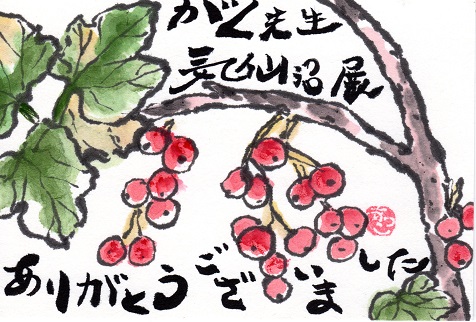 がく先生
気仙沼展
ありがとうございました